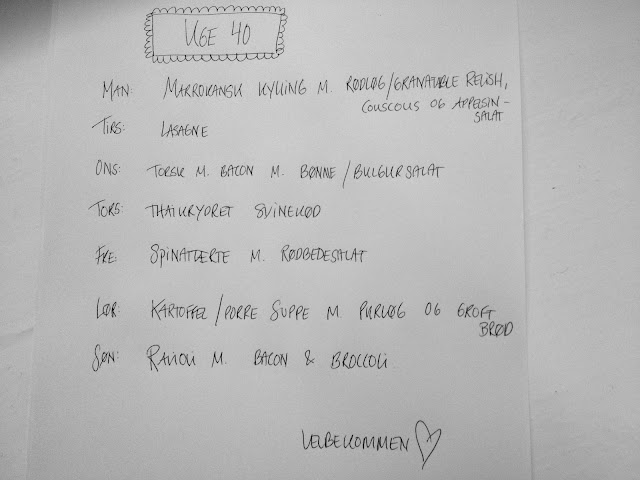 UGE 40
MAN: MARROKANSK KYLLING M. RØDLØG/GRANATÆBLE RELISH,
COUSCOUS OG APPELSIN-
SALAT
TIRS: LASAGNE
ONS: TORSK M. BACON M. BØNNE/BULGURSALAT
TORS: THAIKRYDRET SVINEKØD
FRE: SPINATTÆRTE M. RØDBEDESALAT
LØR: KARTOFFEL/PORRE SUPPE M. PURLØG OG GROFT
BRØD
SØN: RAVIOLI M. BACON & BROCCOLI.
VELBEKOMMEN ♡